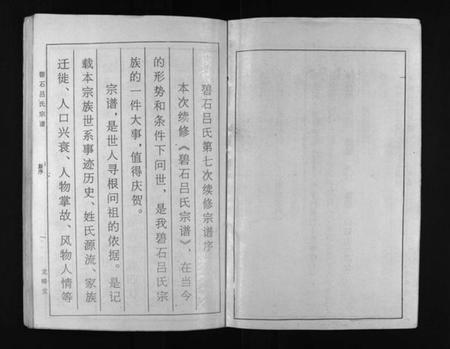 碧石吕氏第七次续修宗谱序
本次续修《碧石吕氏宗谱》，在当今
的形势和条件下问世，是我碧石吕氏宗
族的一件大事，值得庆贺。
宗谱，是世人寻根问祖的依据。是记
载本宗族世系事迹历史、姓氏源流、家族
迁徙、人口兴衰、人物掌故、风物人情等
碧石吕氏宗谱
一